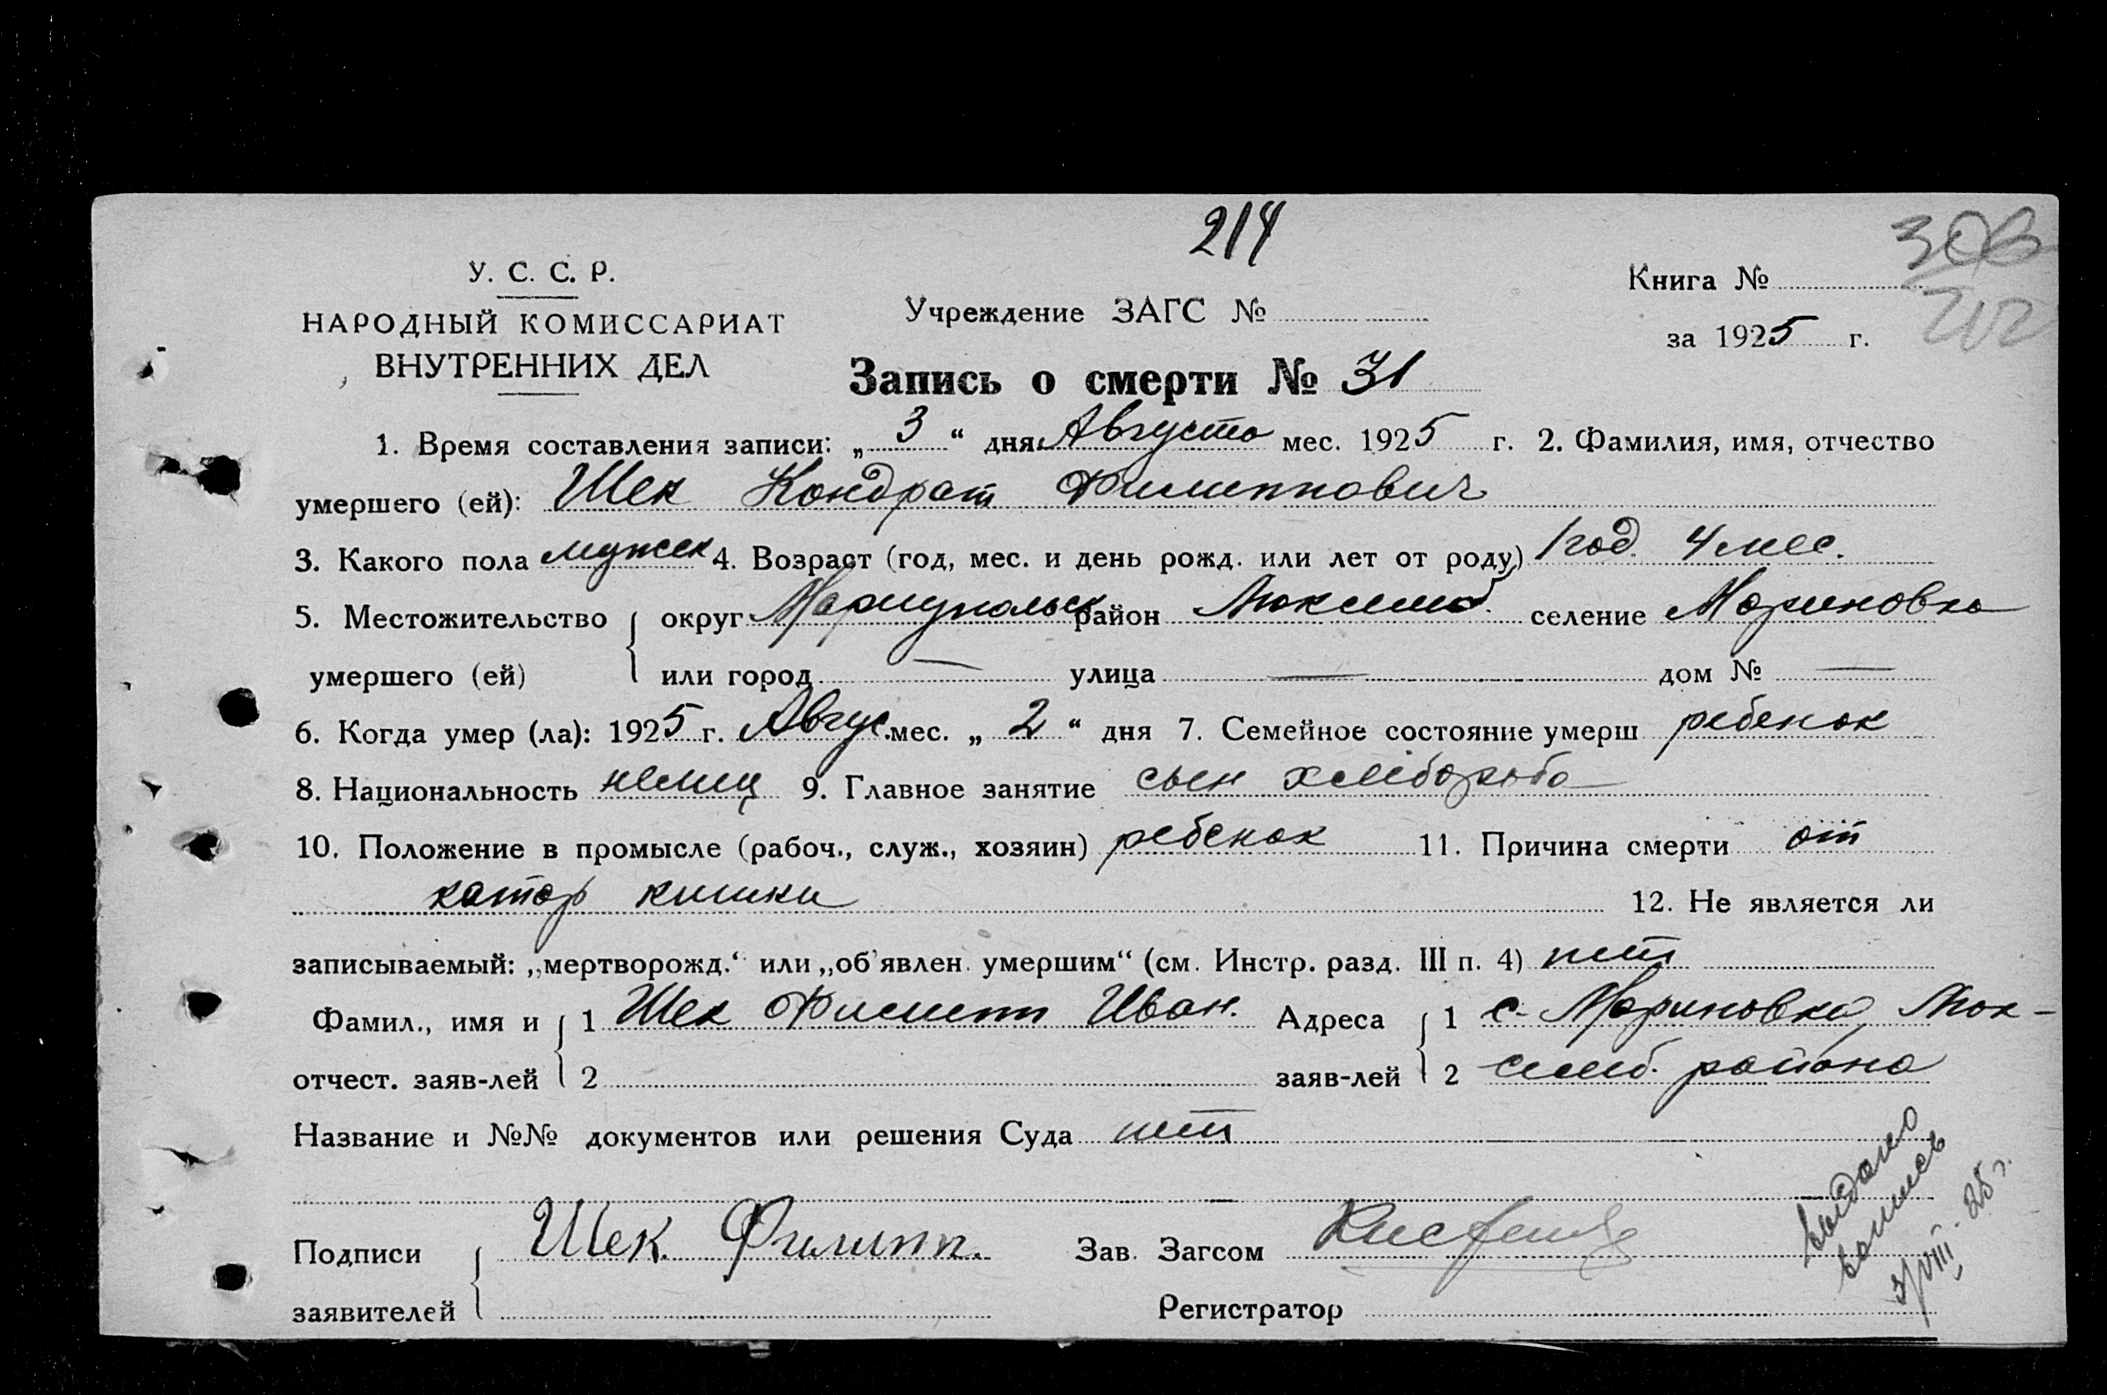 214
У. С. С. Р.
НАРОДНЫЙ КОМИССАРИАТ
ВНУТРЕННИХ ДЕЛ
Учреждение ЗАГС №
Книга №
за 1925 г.
Запись о смерти № 31
1. Время составления записи: „ 3 “ дня Августа мес. 1925 г. 2. Фамилия, имя, отчество
умершего (ей): Шек Кондрат Филиппович
3. Какого пола мужск 4. Возраст (год, мес. и день рожд. или лет от роду) 1 год. 4 мес.
5. Местожительство округ Мариупольск район Люксемб. селение Мариновка
умершего (ей) или город — улица — дом № —
6. Когда умер (ла): 1925 г. Авгус. мес. „ 2 “ дня 7. Семейное состояние умерш ребенок
8. Национальность немец 9. Главное занятие сын хлебороба
10. Положение в промысле (рабоч., служ., хозяин) ребенок 11. Причина смерти от
катар кишки 12. Не является ли
записываемый: „мертворожд.“ или „об'явлен. умершим“ (см. Инстр. разд. III п. 4) нет
Фамил., имя и 1 Шек Филипп Иван. Адреса 1 с. Мариновка, Люк-
отчест. заяв-лей 2 заяв-лей 2 семб. района
Название и №№ документов или решения Суда нет
Подписи Шек. Филипп. Зав. Загсом
заявителей Регистратор
выдано
3/VIII-25 г.